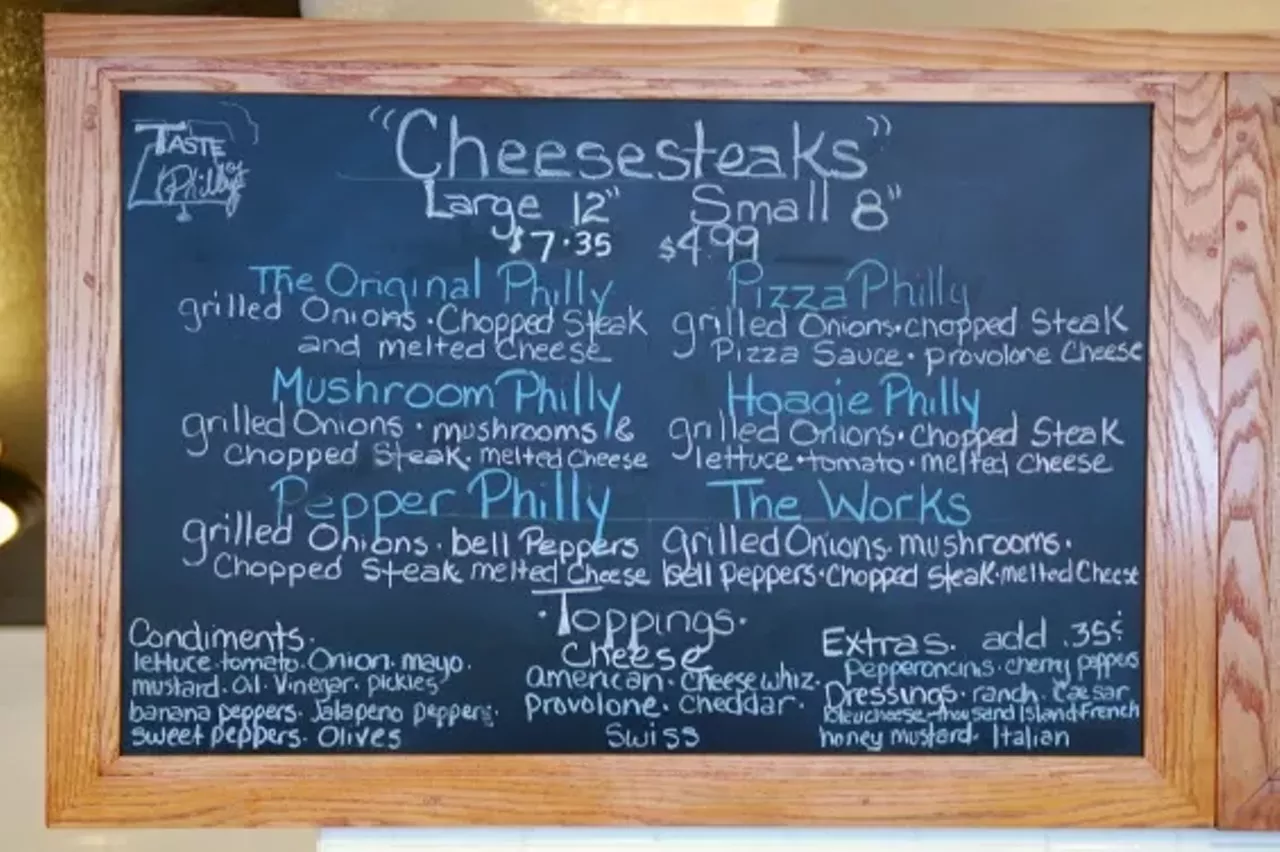 TASTE
of
Philly
"Cheesesteaks"
Large 12" Small 8"
$7.35 $4.99
The Original Philly
grilled Onions · Chopped Steak
and melted Cheese
Pizza Philly
grilled Onions · chopped Steak
Pizza Sauce · provolone Cheese
Mushroom Philly
grilled Onions · mushrooms &
Chopped Steak · melted Cheese
Hoagie Philly
grilled Onions · Chopped Steak
lettuce · tomato · melted cheese
Pepper Philly
grilled Onions · bell Peppers
Chopped Steak melted Cheese
The Works
Grilled Onions · mushrooms ·
bell Peppers · Chopped Steak · melted Cheese
Condiments ·
lettuce · tomato · Onion · mayo ·
mustard · Oil · Vinegar · pickles
banana peppers · Jalapeno peppers ·
sweet peppers · Olives
· Toppings ·
Cheese
american · Cheese whiz ·
Provolone · Cheddar ·
Swiss
Extras. add .35¢
Pepperoncinis · cherry peppers
Dressings · ranch · Caesar
bleucheese · thousand Island · French
honey mustard · Italian